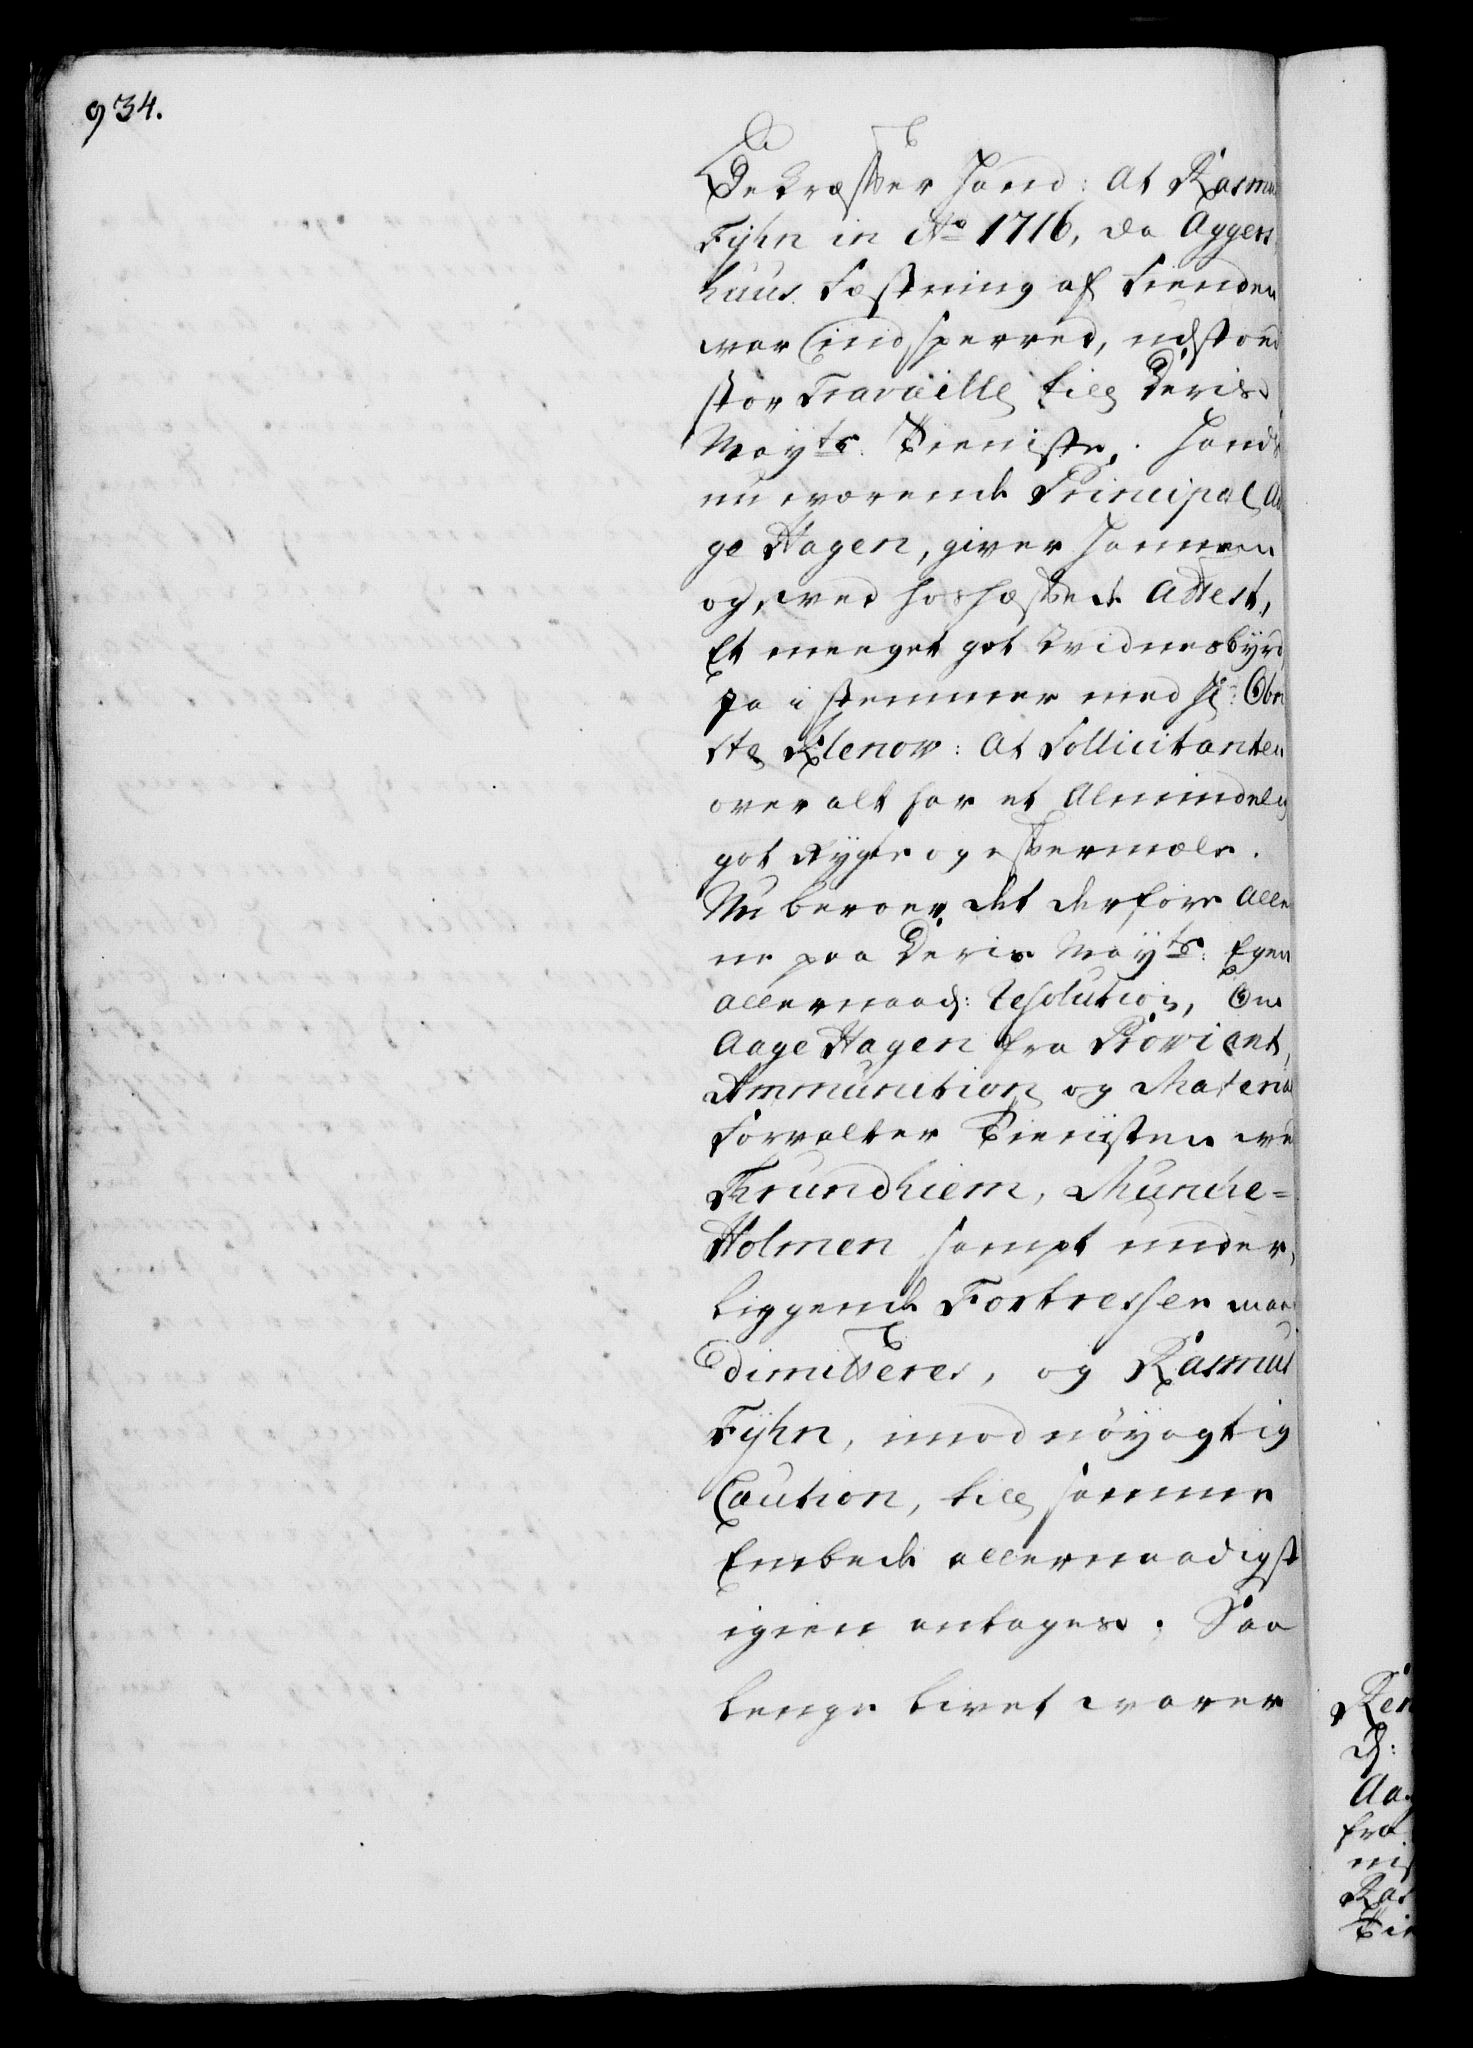 934.
Bekræfter hand: At Rasmus
Fyhn in Ao 1716, da Aggers
huus Fæstning af Fienden
war indsperred, udstoed
stor Travaille till Deris
Mayts: Tieniste. Hands
nu wærende Principal Aa
ge Hagen, giver hannem
og, wed hoshæftede Attest,
Et meeget got Widnesbyrd
Ja i stemmer med Hr: Obri
ste Klenow: At Sollicitanten
over alt har et Almindelig
got Rygte og eftermæle.
Nu beroer det derfore alle
ne paa Deris Mayts: Egen
allernaad: Resolution, Om
Aage Hagen fra Proviant,
Ammunition og Material
Forvalter Tienisten wed
Thrundhiem, Munche=
Holmen sampt under,
liggende Fortresser maa
dimitteres, og Rasmus
Fyhn, imod nöyagtig
Caution, till samme
Embede allernaadigst
igien antages. Saa
lenge livet warer
Ren
Aag
fra
nis
Ras
Tie